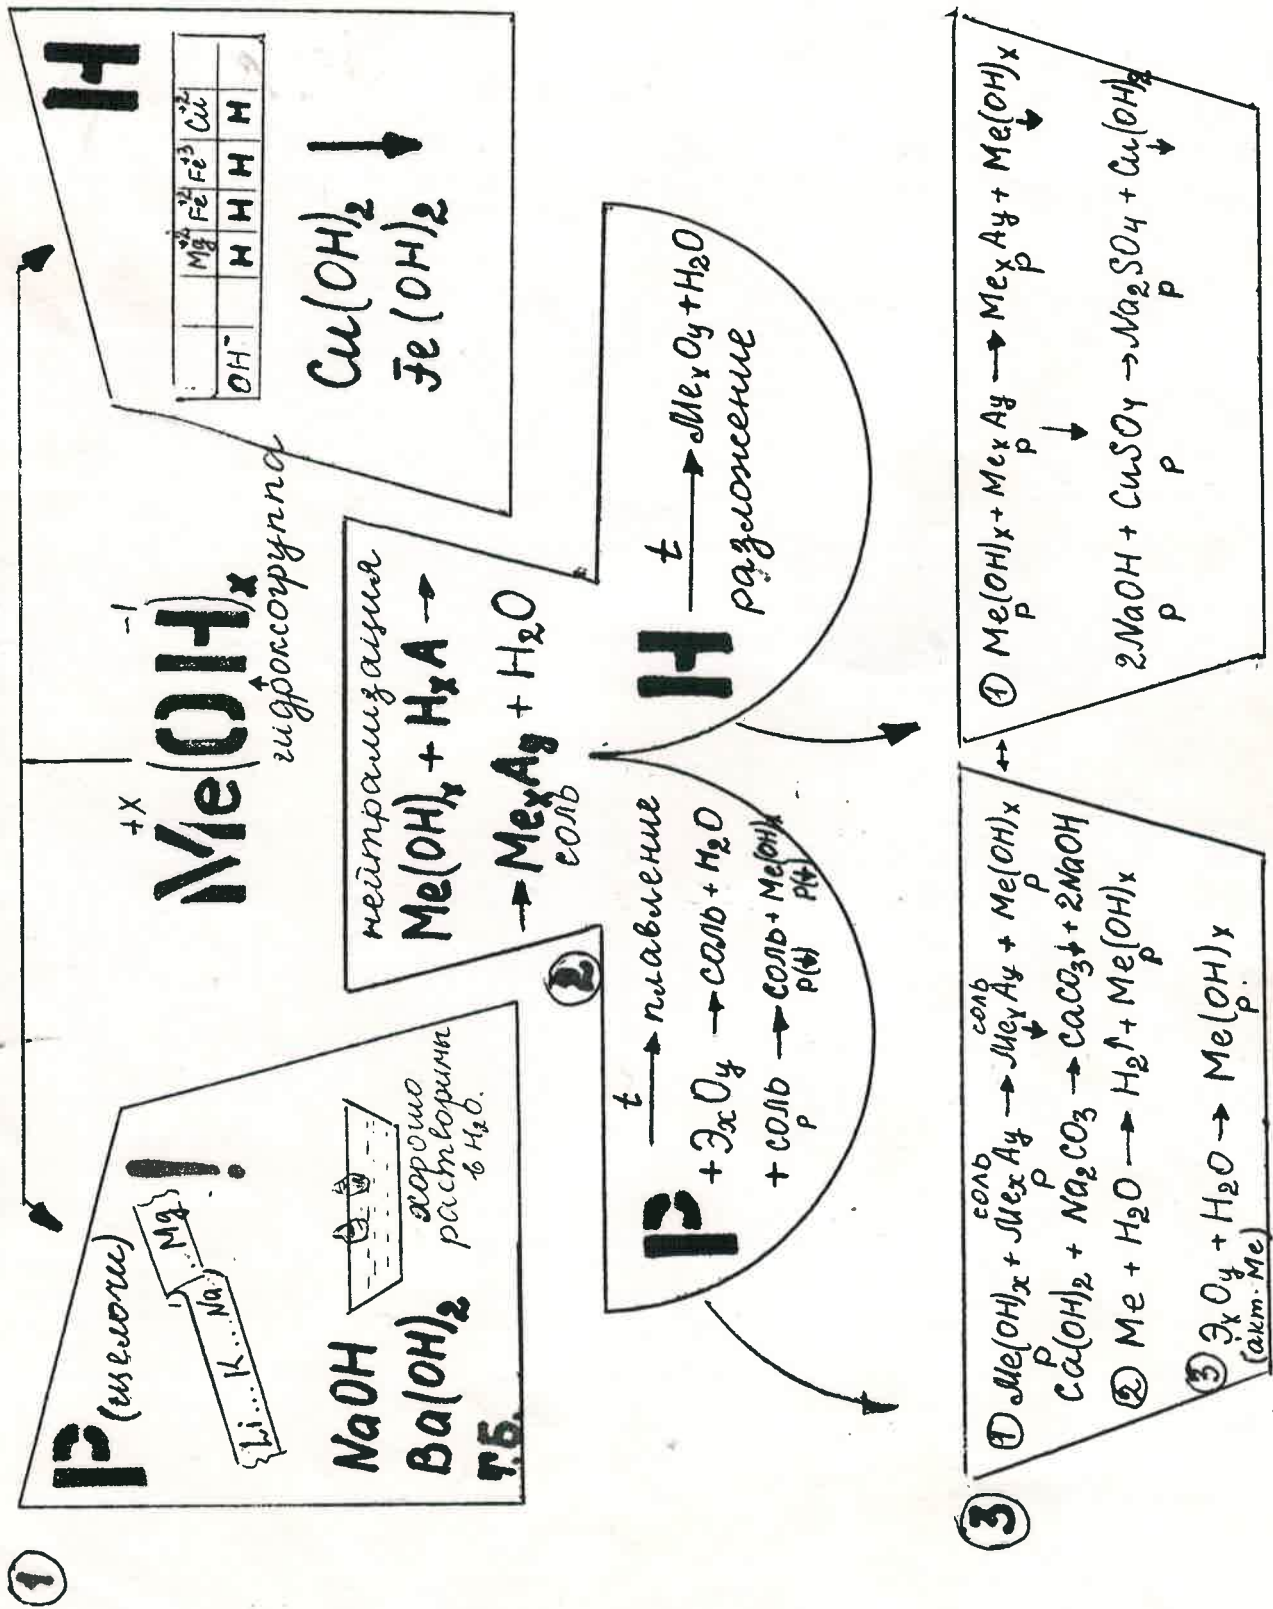 ①
Me⁺ˣ(OH)⁻¹ₓ
гидроксогруппа
Р (щелочи)
!
Li...K...Na Mg
NaOH
Ba(OH)₂
Т.Б.
хорошо
растворимы
в H₂O.
Н
Mg⁺² Fe⁺² Fe⁺³ Cu⁺²
OH⁻ Н Н Н Н
Cu(OH)₂ ↓
Fe(OH)₂
②
нейтрализация
Me(OH)ₓ + HₓA →
→ MeₓAy + H₂O
соль
Р t → плавление
+ ЭₓOy → соль + H₂O
+ соль → соль + Me(OH)ₓ
р р(↓) р(↓)
Н t → MeₓOy + H₂O
разложение
③
соль соль
① Me(OH)ₓ + MeₓAy → MeₓAy + Me(OH)ₓ
р р ↓ р
Ca(OH)₂ + Na₂CO₃ → CaCO₃↓ + 2NaOH
② Me + H₂O → H₂↑ + Me(OH)ₓ
р
③ ЭₓOy + H₂O → Me(OH)ₓ
(акт. Me) р.
↔
① Me(OH)ₓ + MeₓAy → MeₓAy + Me(OH)ₓ
р р р ↓
↓
2NaOH + CuSO₄ → Na₂SO₄ + Cu(OH)₂
р р р ↓